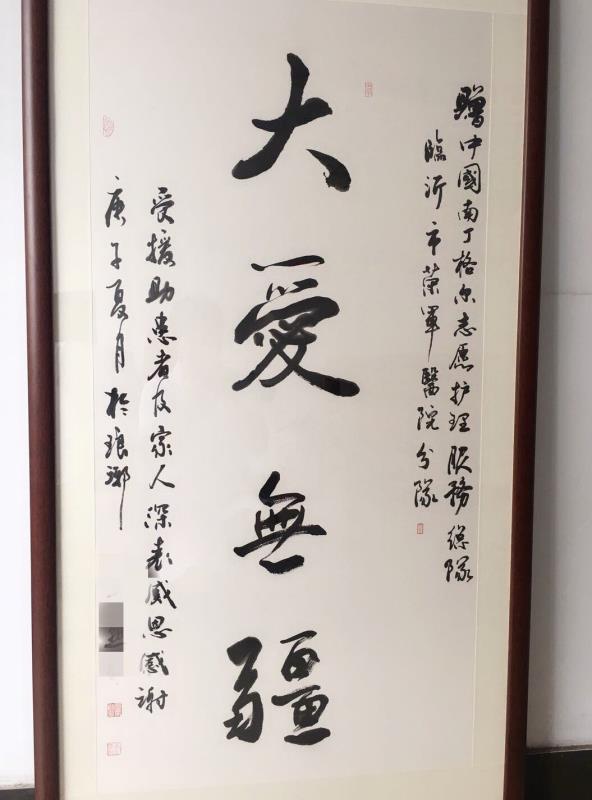 贈中國南丁格尔志愿护理服務總隊
臨沂市荣軍醫院分隊
大愛無疆
受援助患者及家人深表感恩感謝
庚子夏月於琅琊